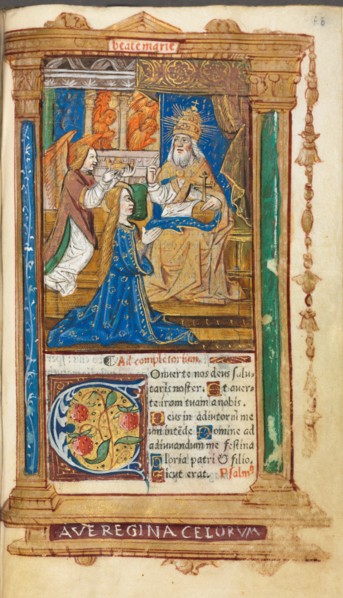 beate marie
Ad completorium.
Conuerte nos deus salu
taris noster. Et auer-
te iram tuam a nobis.
Deus in adiutoriū me
um intēde. Domine ad
adiuuandum me festina
Gloria patri & filio.
Sicut erat. Psalmꝰ
AVE REGINA CELORVM